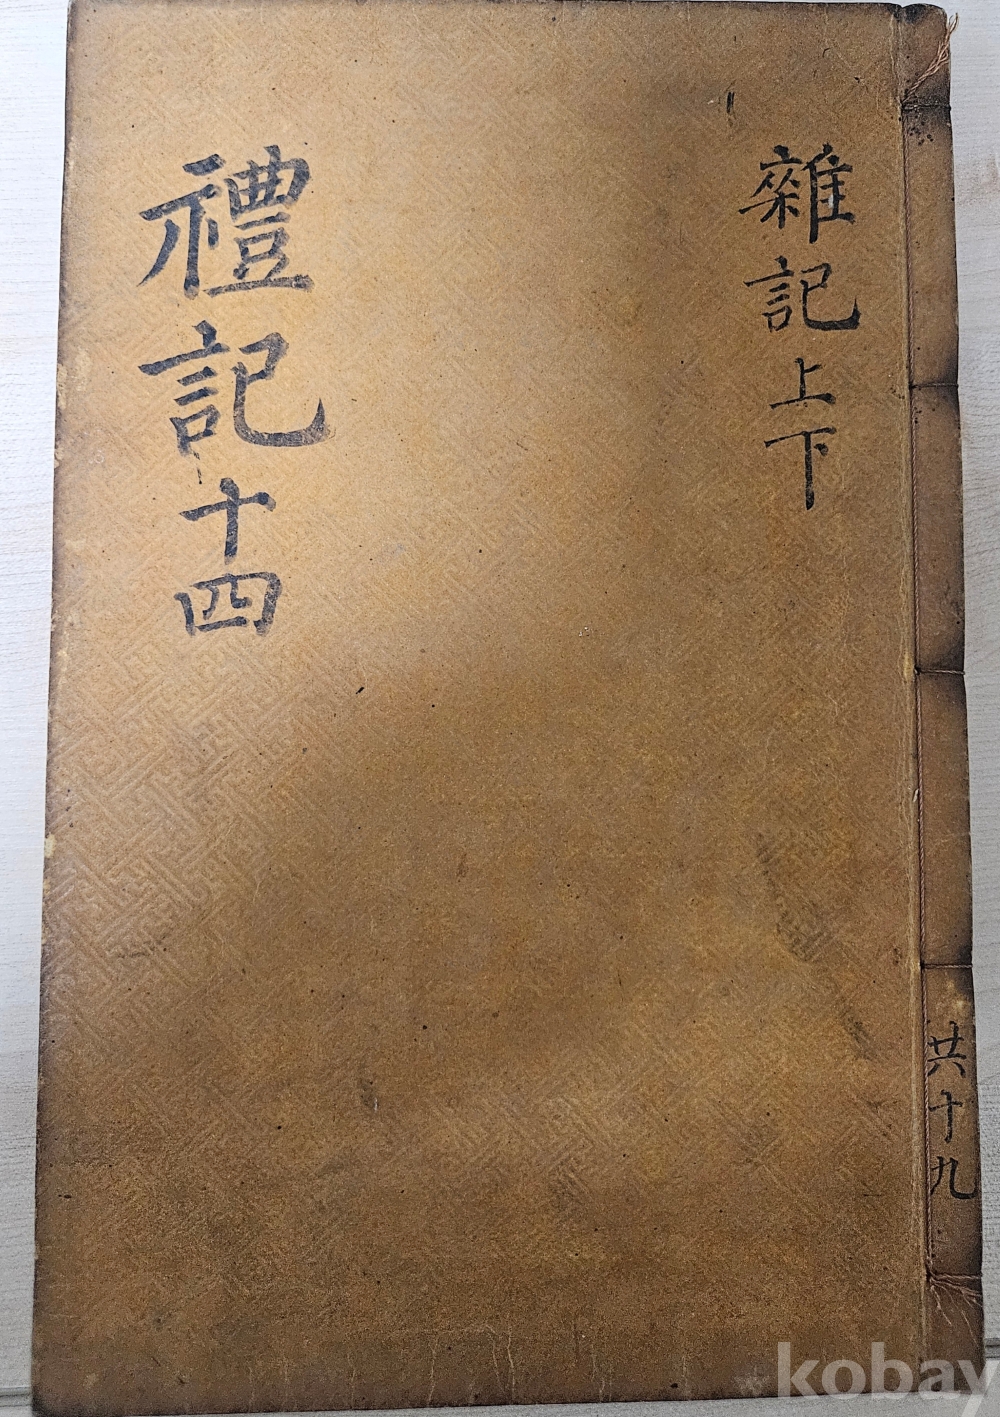 雜記上下
禮記十四
共十九
kobay